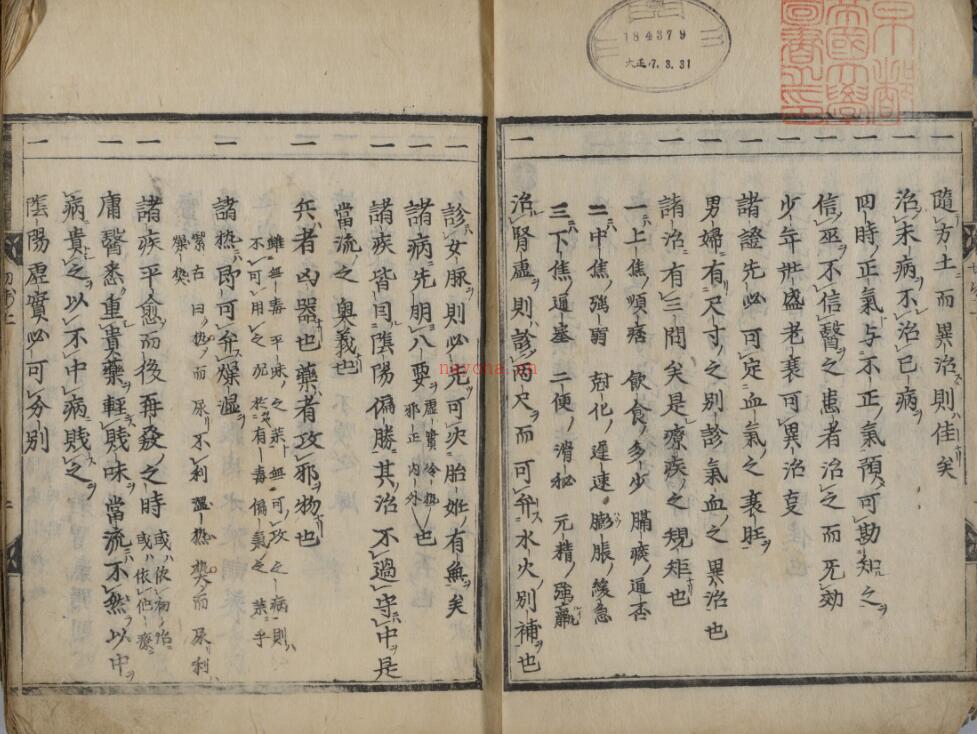 184379
大正 7. 3. 31
京都
帝國大學
圖書之印
一 隨方土而異治則佳矣
一 治未病不治已病
一 四時正氣与不正氣預可勘知之
一 信巫不信醫之患者治之而旡効
一 少年壯盛老衰可異治㕝
一 諸證先必可定血氣之衰旺
一 男婦有尺寸之別診氣血之異治也
一 諸治有三問矣是療疾之規矩也
一上焦 順痞 飲食多少 膈痰通否
二中焦 強弱 尅化遲速 膨脹緩急
三下焦 通塞 二便滑秘 元精強羸
一 治腎虛則診兩尺而可弁水火別補也
一 診女脉則必先可决胎姙有無矣
一 諸病先明八要虛實冷熱邪正内外也
一 諸疾皆因陰陽偏勝其治不過守中是
當流之奥義也
一 兵者凶器也藥者攻邪物也
雖無毒平味之藥無可攻之病則
不可用之况於有毒偏氣之藥乎
一 諸热即可弁燥湿
紫古曰热而尿不利湿热热而尿利
燥热
一 諸疾平愈而後再發之時或依初治或依他療
一 庸醫悉重貴藥輕賎味當流不然以中
病貴之以不中病賎之
一 陰陽虛實必可分別
nayona.cn